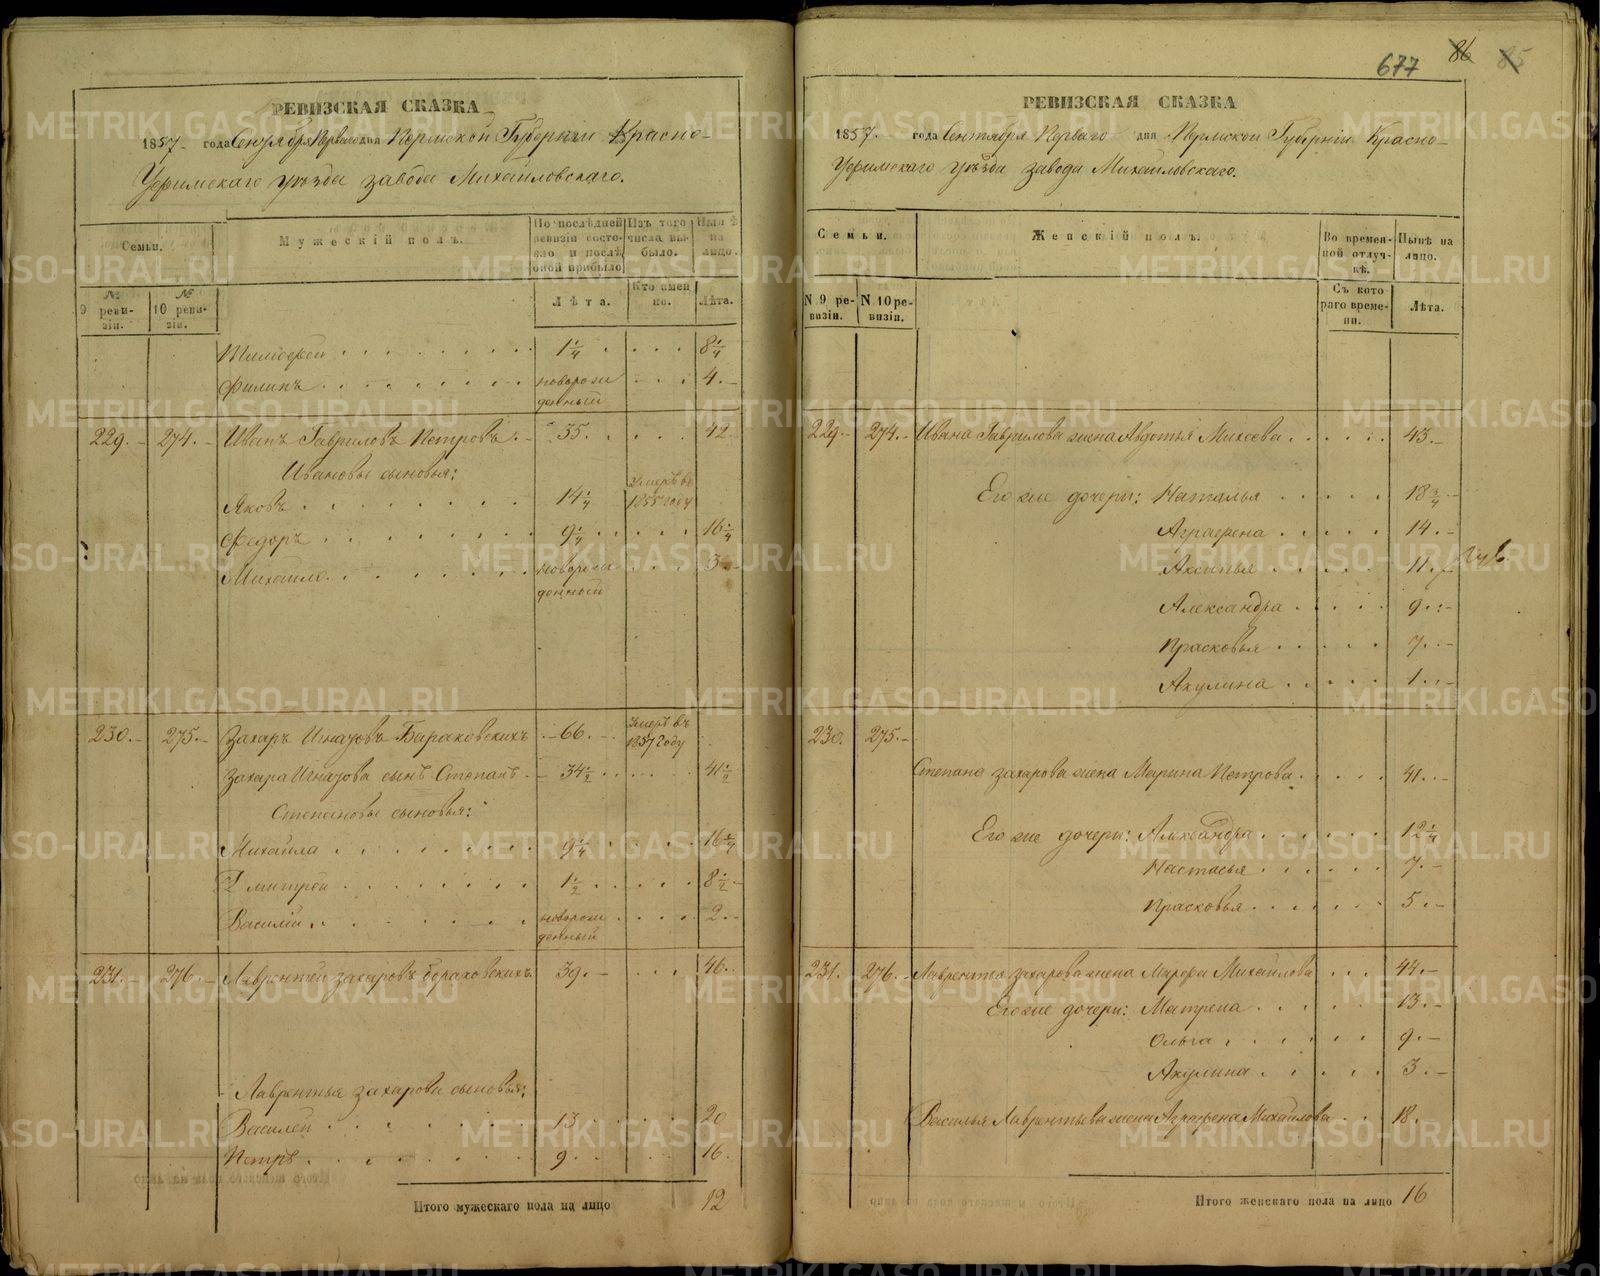 677 86 85
РЕВИЗСКАЯ СКАЗКА
1857 года Сентября Перваго дня Пермской Губерніи Красно-
Уфимскаго уѣзда завода Михайловскаго.
Семьи.
Мужескій полъ.
По послѣдней ревизіи состояло и послѣ оной прибыло
Изъ того числа выбыло.
Нынѣ на лицо.
№ 9 ревизіи.
№ 10 ревизіи.
Лѣта.
Кто именно.
Лѣта.
Тимофей 1 1/4 8 1/4
Филипъ новорожденный 4
229. 274. Иванъ Гавриловъ Петровъ 35. 42
Ивановы сыновья:
Яковъ 14 1/4 Умеръ въ 1855 году
Федоръ 9 1/4 16 1/4
Михайло новорожденный 3
230. 275. Захаръ Игнатовъ Бараковскихъ 66. Умеръ въ 1857 году
Захара Игнатова сынъ Степанъ 34 1/2 41 1/2
Степановы сыновья:
Михайла 9 1/4 16 1/4
Дмитрей 1 1/2 8 1/2
Василій новорожденный 2.
231. 276. Лаврентей Захаровъ Бораковскихъ 39. 46.
Лаврентья Захарова сыновья:
Василей 13 20
Петръ 9 16
Итого мужескаго пола на лицо 12
РЕВИЗСКАЯ СКАЗКА
1857. года Сентября Перваго дня Пермской Губерніи Красно-
Уфимскаго уѣзда завода Михайловскаго.
Семьи.
Женскій полъ.
Во временной отлучкѣ.
Нынѣ на лицо.
N 9 ревизіи.
N 10 ревизіи.
Съ котораго времени.
Лѣта.
229. 274. Ивана Гаврилова жена Авдотья Михеева 43.
Его же дочери: Наталья 18 3/4
Аграфена 14.
Аксинья 11.
Александра 9.
Прасковья 7.
Акулина 1.
230. 275.
Степана Захарова жена Марина Петрова 41.
Его же дочери: Александра 12 1/4
Настасья 7.
Прасковья 5.
231. 276. Лаврентья Захарова жена Марфа Михайлова 44.
Его же дочери: Матрена 13.
Ольга 9.
Акулина 3.
Василья Лаврентьева жена Аграфена Михайлова 18.
Итого женскаго пола на лицо 16